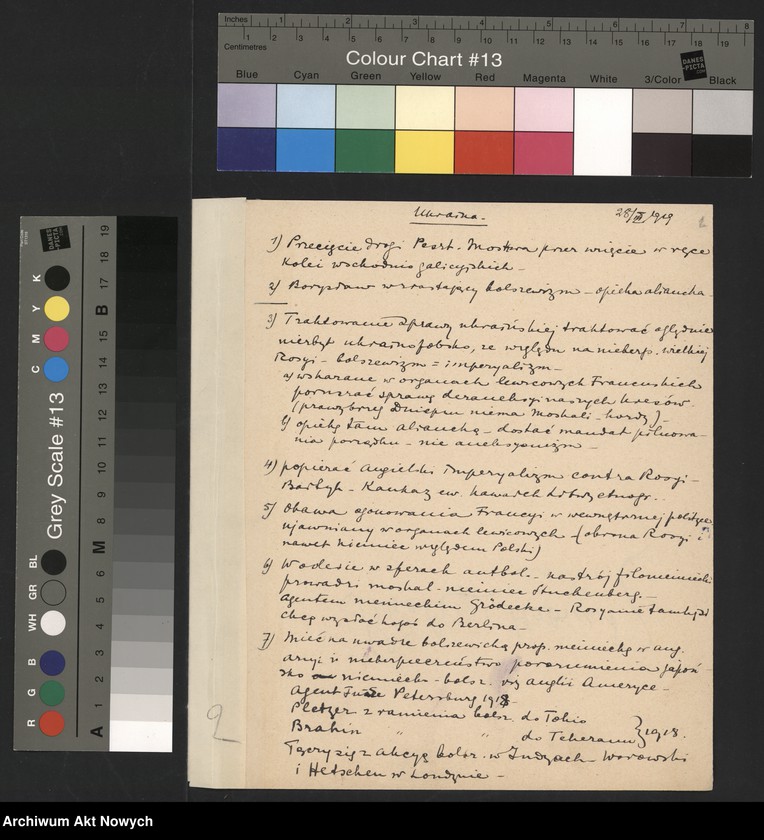 Inches 1 2 3 4 5 6 7 8
Centimetres 1 2 3 4 5 6 7 8 9 10 11 12 13 14 15 16 17 18 19
Colour Chart #13
DANES PICTA .COM
Blue Cyan Green Yellow Red Magenta White 3/Color Black
Grey Scale #13
R G B WH GR BL C M Y K
A 1 2 3 4 5 6 M 8 9 10 11 12 13 14 15 B 17 18 19
Ukraina. 28/III 1919
1) Przecięcie drogi Peszt - Moskwa przez wzięcie w ręce
Kolei wschodnio galicyjskich -
2) Borysław wzrastający bolszewizm - opieka aliancka.
3) Traktowanie sprawy ukraińskiej traktować oględnie
niezbyt ukrainofobsko, ze względu na niebezp. wielkiej
Rosyi - bolszewizm = imperyalizm -
a) wskazane w organach lewicowych Francuskich
poruszać sprawę dezaneksyi naszych kresów.
(prawybrzeg Dniepru niema Moskali - )
b) opiekę tam aliancką - dostać mandat pilnowa-
nia porządku - nie aneksyonizm -
4) popierać Angielski imperyalizm contra Rosyi -
Bałtyk - Kaukaz
5) Obawa Francyi w wewnętrznej polityce
ujawniany w organach lewicowych - (obrona Rosyi i
nawet Niemiec względem Polski)
6) W Odesie w sferach - nastrój filoniemiecki
prowadzi moskal - niemiec Stuchenberg. -
Agentem niemieckim Grödecke - Rosyanie tamtejsi
chcą wysłać kogoś do Berlina -
7) Mieć na uwadze bolszewicką prop. niemiecką w ang.
armyi i niebezpieczeństwo porozumienia japoń-
sko niemiecko - bolsz. Anglii Ameryce -
Agent Petersburg 1918 -
Pletzer z ramienia bolsz. do Tokio
Brakin " " do Teheranu } 1918.
Łączy się z akcyą bolsz. w Indyach - Worowski
i Hetschen w Londynie -
2
Archiwum Akt Nowych